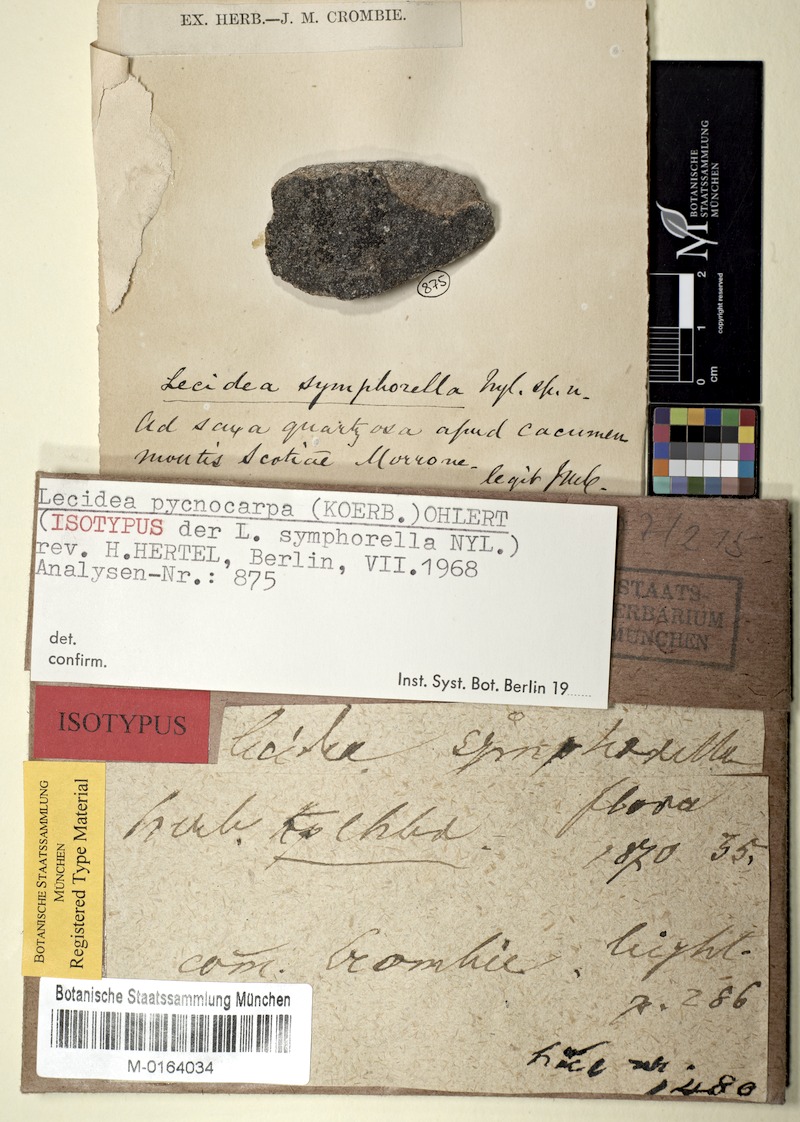 EX. HERB.—J. M. CROMBIE.
875
Lecidea symphorella Nyl. sp. n.
Ad saxa quartzosa apud cacumen
montis Scotiae Morrone.
legit
BOTANISCHE
STAATSSAMMLUNG
MÜNCHEN
0 1 2
cm
copyright reserved
Lecidea pycnocarpa (KOERB.)OHLERT
(ISOTYPUS der L. symphorella NYL.)
rev. H.HERTEL, Berlin, VII.1968
Analysen-Nr.: 875
det.
confirm.
Inst. Syst. Bot. Berlin 19
STAATS
HERBARIUM
MÜNCHEN
ISOTYPUS
lecidea symphorella
herb. flora
1870 35.
com. Crombie. light.
p. 286
nr.
1480
BOTANISCHE STAATSSAMMLUNG
MÜNCHEN
Registered Type Material
Botanische Staatssammlung München
M-0164034